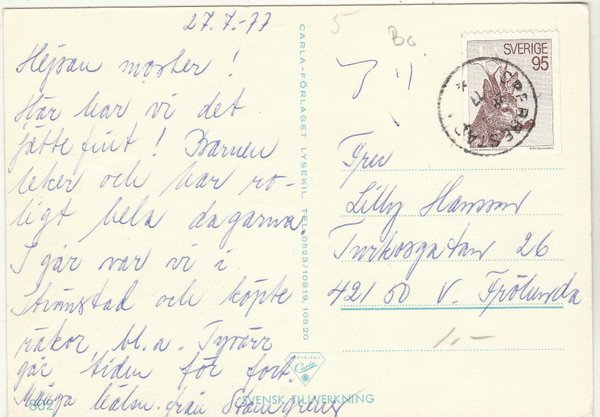 27.7.-77
Hejsan moster!
Här har vi det
jätte fint! Barnen
leker och har ro-
ligt hela dagarna.
I går var vi i
Strömstad och köpte
räkor, bl.a. Tyvärr
går tiden för fort.
Många hälsn. från
802
CARLA-FÖRLAGET LYSEKIL, TEL. 0523/10919, 10820
COPYRIGHT
Carla
SVENSK TILLVERKNING
5
SVERIGE
95
Fru
Lilly Hansson
Turkosgatan 26
421 50 V. Frölunda
1:-